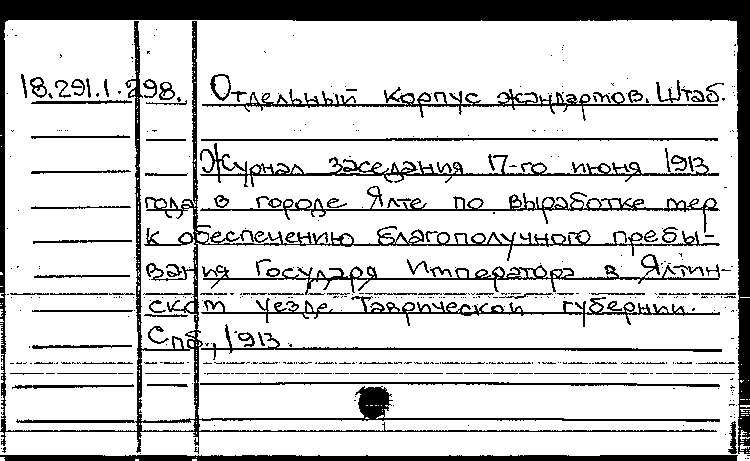 18.291.1.298. Отдельный корпус жандармов. Штаб.
Журнал заседания 17-го июня 1913
года в городе Ялте по выработке мер
к обеспечению благополучного пребы-
вания Государя Императора в Ялтин-
ском уезде Таврической губернии.
Спб., 1913.